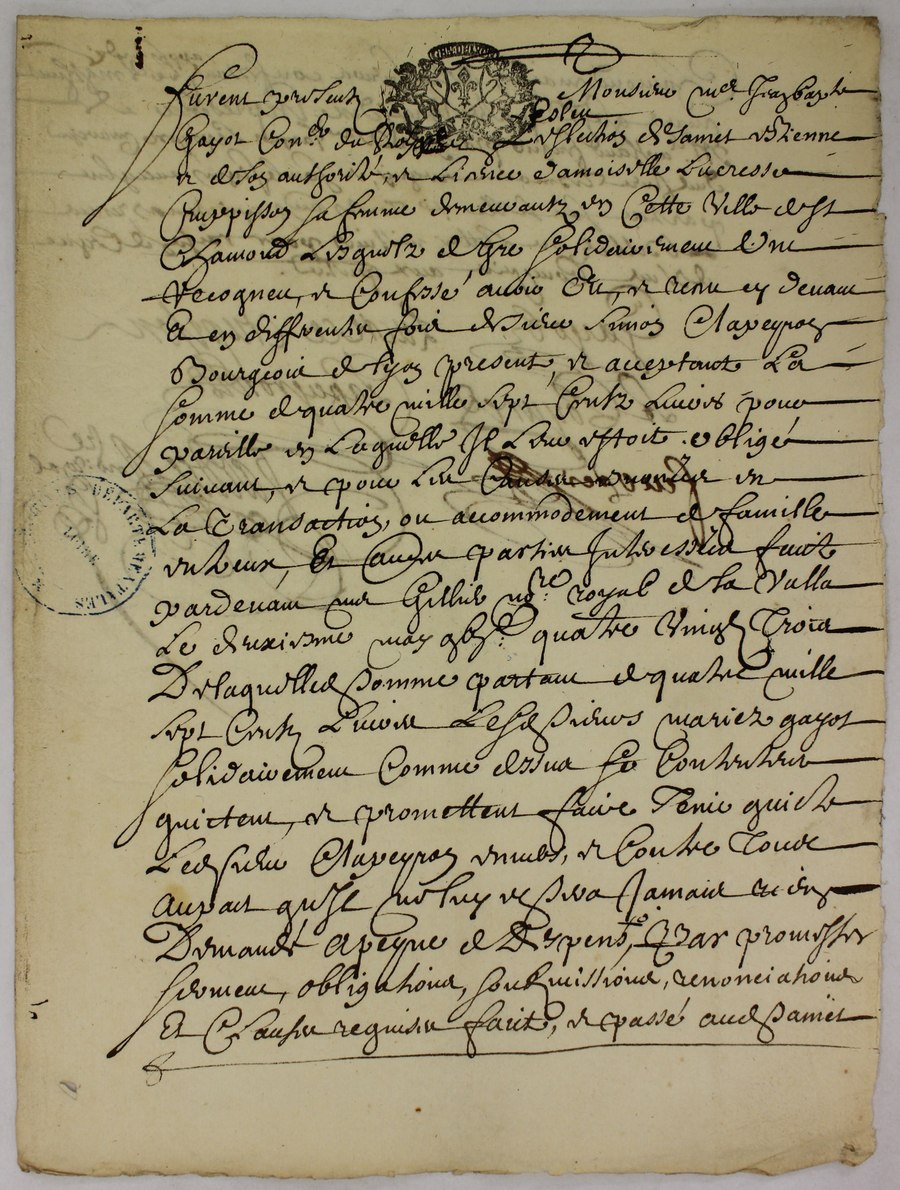 GN. DE LYON
furent presentz Monsieur mre Jean bapte
Gayot Coner du Roy esleu en Leslection de Sainct estienne
et de son authorité, et Licence damoiselle Lucresse
sa femme demeurantz en Cette Ville de St
Chamond Lesquelz de Gre solidairement ont
Recogneu, et Confessé avoir eu, et receu cy devant
Et en differentes fois de sieur Simon Clapeyron
Bourgeois de Lyon present, et acceptant La
somme de quatre mille sept Centz Livres pour
pareille en Laquelle Il Leur estoit obligé
suivant, et pour Les Causes en
La Transaction, ou accommodement de famille
entreux, Et autres parties Interessées faict
pardevant me Gillier nore royal de La Valla
Le deuxiesme may quatre Vingtz Trois
De laquelle somme partant de quatre mille
sept Centz Livres Lesd sieurs mariez gayot
solidairement Comme dessus se Contentent
quictent, et promettent faire Tenir quicte
Led sieur Clapeyron envers, et Contre Tous
Aupact quil ne luy en sera Jamais rien
Demandé Apeyne de Despens, Par promesses
serment, obligations, soubmissions, renonciations
Et Clauses requises faict, et passé aud Sainct
DEPARTEMENTALES
LOIRE